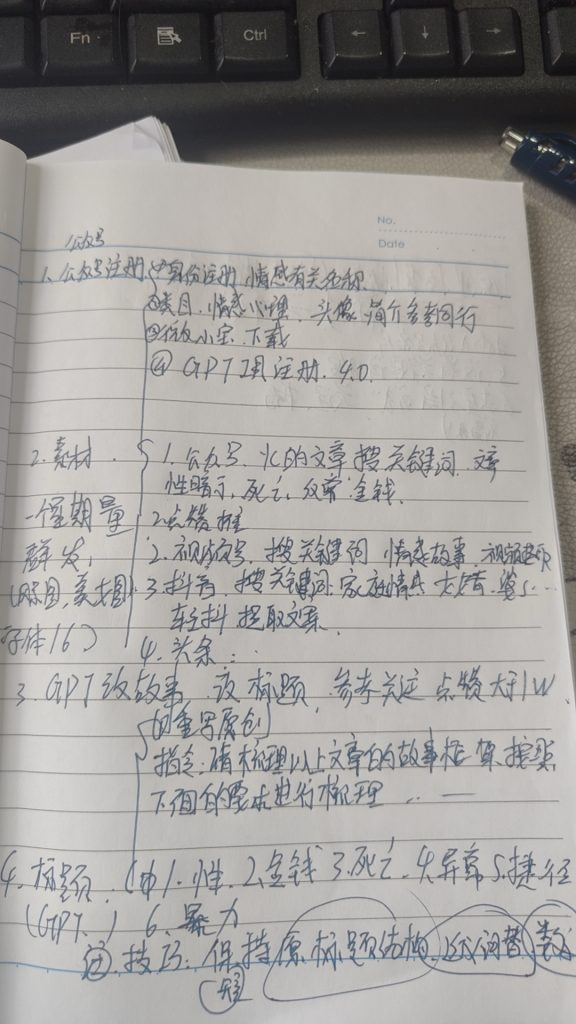 Fn
Ctrl
←
↓
→
No.
Date
公众号
1. 公众号注册 ①身份注册 情感有关名称
②类目. 情感心理. 头像 简介参考同行
③ 小宝 下载
④ GPT 注册. 4.0.
2. 素材. 1. 公众号. 火的文章 搜关键词.
性暗示, 死亡, 金钱.
一个星期量 2. 点赞 推
群发, 2. 视频号, 搜关键词 情感故事.
(原图, 美女图) 3. 抖音, 搜关键词. 家庭情感
字体16) 轻抖 提取文案.
4. 头条...
3. GPT改故事 改标题, 参考关注 点赞大于1W
重写原创
指令: 请梳理以上文章的故事框架. 按照
下面的要求进行梳理 ... —
4. 标题. ① 1. 性. 2. 金钱 3. 死亡. 4. 异常 5. 捷径
(GPT.) 6. 暴力
② 技巧: 保持原标题结构 词替